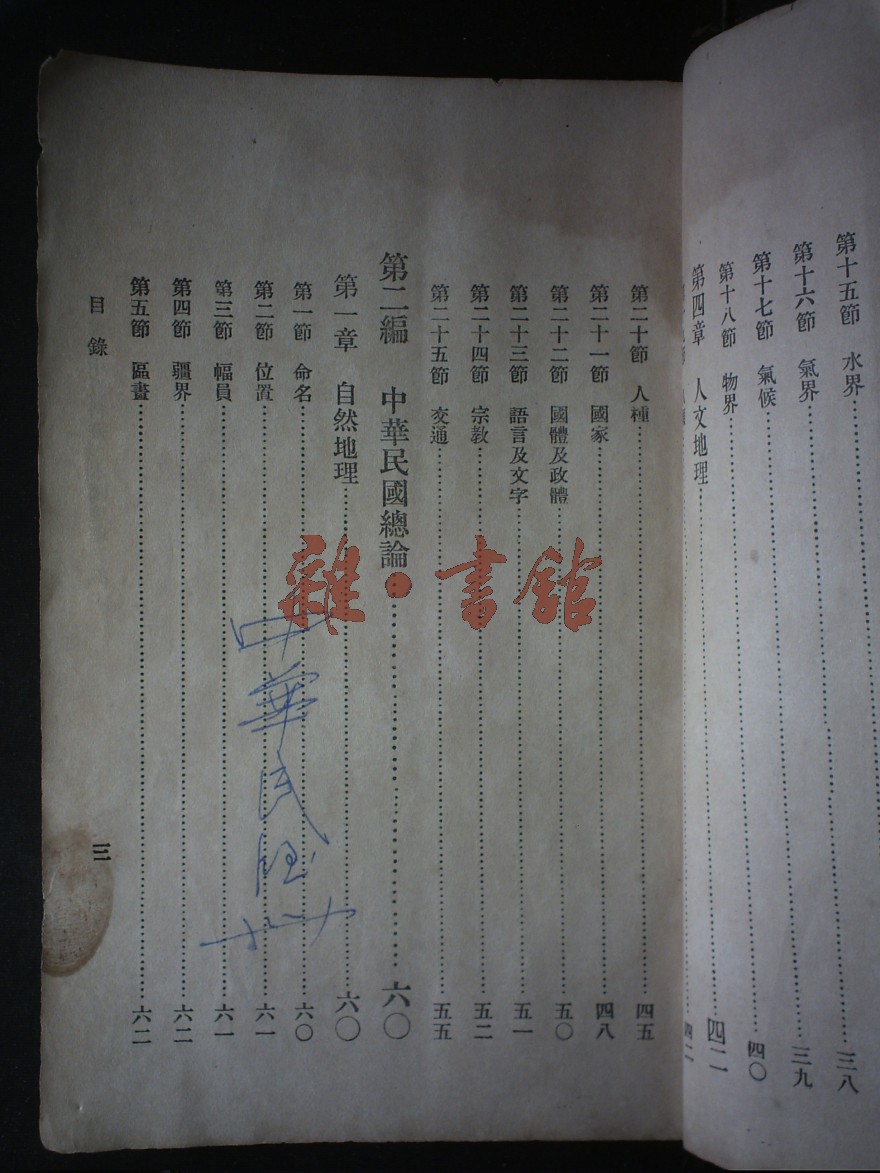 第十五節　水界…三八
第十六節　氣界…三九
第十七節　氣候…四〇
第十八節　物界…四一
第四章　人文地理…四二
第二十節　人種…四五
第二十一節　國家…四八
第二十二節　國體及政體…五〇
第二十三節　語言及文字…五一
第二十四節　宗教…五二
第二十五節　交通…五五
第二編　中華民國總論…六〇
第一章　自然地理…六〇
第一節　命名…六〇
第二節　位置…六一
第三節　幅員…六一
第四節　疆界…六二
第五節　區畫…六二
目錄
三
雜·書館
中華民國